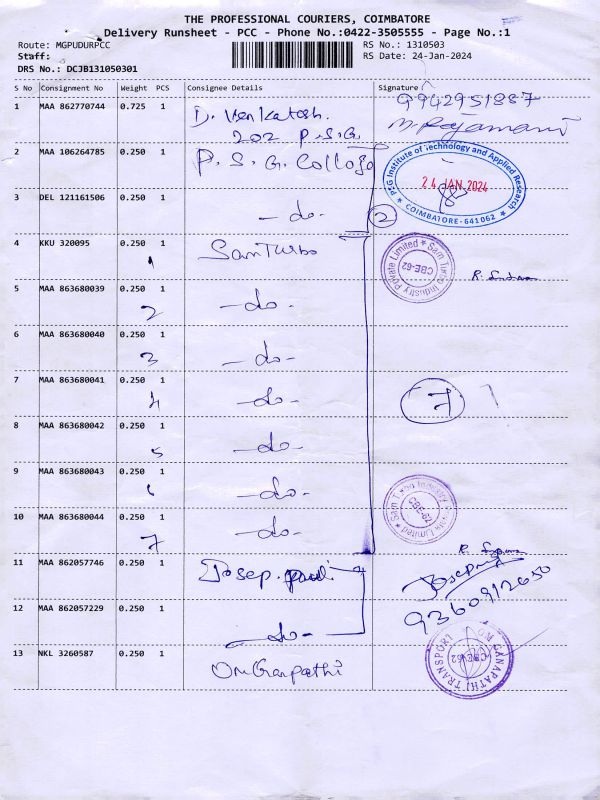 THE PROFESSIONAL COURIERS, COIMBATORE
Delivery Runsheet - PCC - Phone No.:0422-3505555 - Page No.:1
Route: MGPUDURPCC RS No.: 1310503
Staff: RS Date: 24-Jan-2024
DRS No.: DCJB131050301
S No Consignment No Weight PCS Consignee Details Signature
1 MAA 862770744 0.725 1 D. Venkatesh. 9942951887
202 P.S.G. M. Rajamani
2 MAA 106264785 0.250 1 P. S. G. College
PSG Institute of Technology and Applied Research
24 JAN 2024
★ COIMBATORE-641062 ★
3 DEL 121161506 0.250 1 - do - 2
4 KKU 320095 0.250 1 Sam Turbo
1
Sam Turbo Industry Private Limited ★
CBE-62
R.
5 MAA 863680039 0.250 1 - do -
2
6 MAA 863680040 0.250 1 - do -
3
7 MAA 863680041 0.250 1 - do - 7
4
8 MAA 863680042 0.250 1 - do -
5
9 MAA 863680043 0.250 1 - do -
6
Industry
CBE-62
10 MAA 863680044 0.250 1 - do -
7
R.
11 MAA 862057746 0.250 1 Josep. paul
9360912650
12 MAA 862057229 0.250 1 - do -
13 NKL 3260587 0.250 1 Om Ganpathi
OM GANAPATHI TRANSPORT
CBE-62